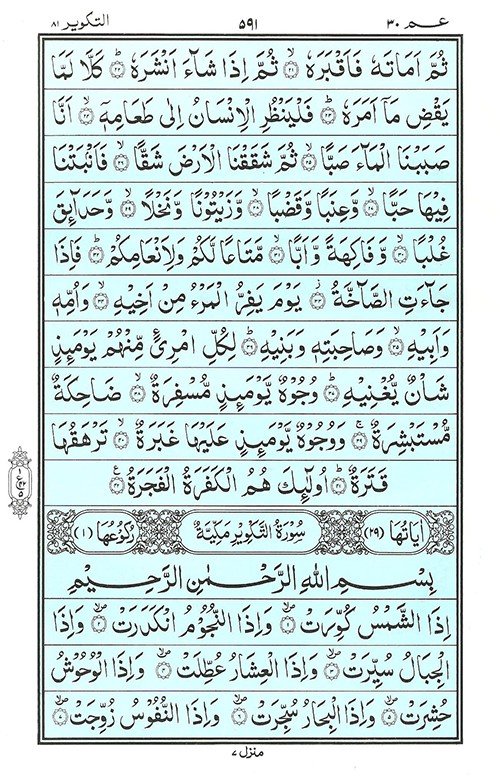 عـم ٣٠ ٥٩١ التكوير ٨١
ثُمَّ اَمَاتَهٗ فَاَقْبَرَهٗ ۙ﴿۲۱﴾ ثُمَّ اِذَا شَآءَ اَنْشَرَهٗ ؕ﴿۲۲﴾ كَلَّا لَمَّا
يَقْضِ مَاۤ اَمَرَهٗ ؕ﴿۲۳﴾ فَلْيَنْظُرِ الْاِنْسَانُ اِلٰى طَعَامِهٖۤ ۙ﴿۲۴﴾ اَنَّا
صَبَبْنَا الْمَآءَ صَبًّا ۙ﴿۲۵﴾ ثُمَّ شَقَقْنَا الْاَرْضَ شَقًّا ۙ﴿۲۶﴾ فَاَنْۢبَتْنَا
فِيْهَا حَبًّا ۙ﴿۲۷﴾ وَّعِنَبًا وَّقَضْبًا ۙ﴿۲۸﴾ وَّزَيْتُوْنًا وَّنَخْلًا ۙ﴿۲۹﴾ وَّحَدَآئِقَ
غُلْبًا ۙ﴿۳۰﴾ وَّفَاكِهَةً وَّاَبًّا ۙ﴿۳۱﴾ مَّتَاعًا لَّكُمْ وَلِاَنْعَامِكُمْ ؕ﴿۳۲﴾ فَاِذَا
جَآءَتِ الصَّآخَّةُ ۫﴿۳۳﴾ يَوْمَ يَفِرُّ الْمَرْءُ مِنْ اَخِيْهِ ۙ﴿۳۴﴾ وَاُمِّهٖ
وَاَبِيْهِ ۙ﴿۳۵﴾ وَصَاحِبَتِهٖ وَبَنِيْهِ ؕ﴿۳۶﴾ لِكُلِّ امْرِیٍٔ مِّنْهُمْ يَوْمَئِذٍ
شَاْنٌ يُّغْنِيْهِ ؕ﴿۳۷﴾ وُجُوْهٌ يَّوْمَئِذٍ مُّسْفِرَةٌ ۙ﴿۳۸﴾ ضَاحِكَةٌ
مُّسْتَبْشِرَةٌ ۚ﴿۳۹﴾ وَوُجُوْهٌ يَّوْمَئِذٍ عَلَيْهَا غَبَرَةٌ ۙ﴿۴۰﴾ تَرْهَقُهَا
قَتَرَةٌ ؕ﴿۴۱﴾ اُولٰٓئِكَ هُمُ الْكَفَرَةُ الْفَجَرَةُ ﴿۴۲﴾
اٰيَاتُهَا (٢٩) سُوْرَةُ التَّكْوِيْرِ مَكِّيَّةٌ رُكُوْعُهَا (١)
بِسْمِ اللّٰهِ الرَّحْمٰنِ الرَّحِيْمِ
اِذَا الشَّمْسُ كُوِّرَتْ ۪ۙ﴿۱﴾ وَاِذَا النُّجُوْمُ انْكَدَرَتْ ۪ۙ﴿۲﴾ وَاِذَا
الْجِبَالُ سُيِّرَتْ ۪ۙ﴿۳﴾ وَاِذَا الْعِشَارُ عُطِّلَتْ ۪ۙ﴿۴﴾ وَاِذَا الْوُحُوْشُ
حُشِرَتْ ۪ۙ﴿۵﴾ وَاِذَا الْبِحَارُ سُجِّرَتْ ۪ۙ﴿۶﴾ وَاِذَا النُّفُوْسُ زُوِّجَتْ ۪ۙ﴿۷﴾
منزل ٧